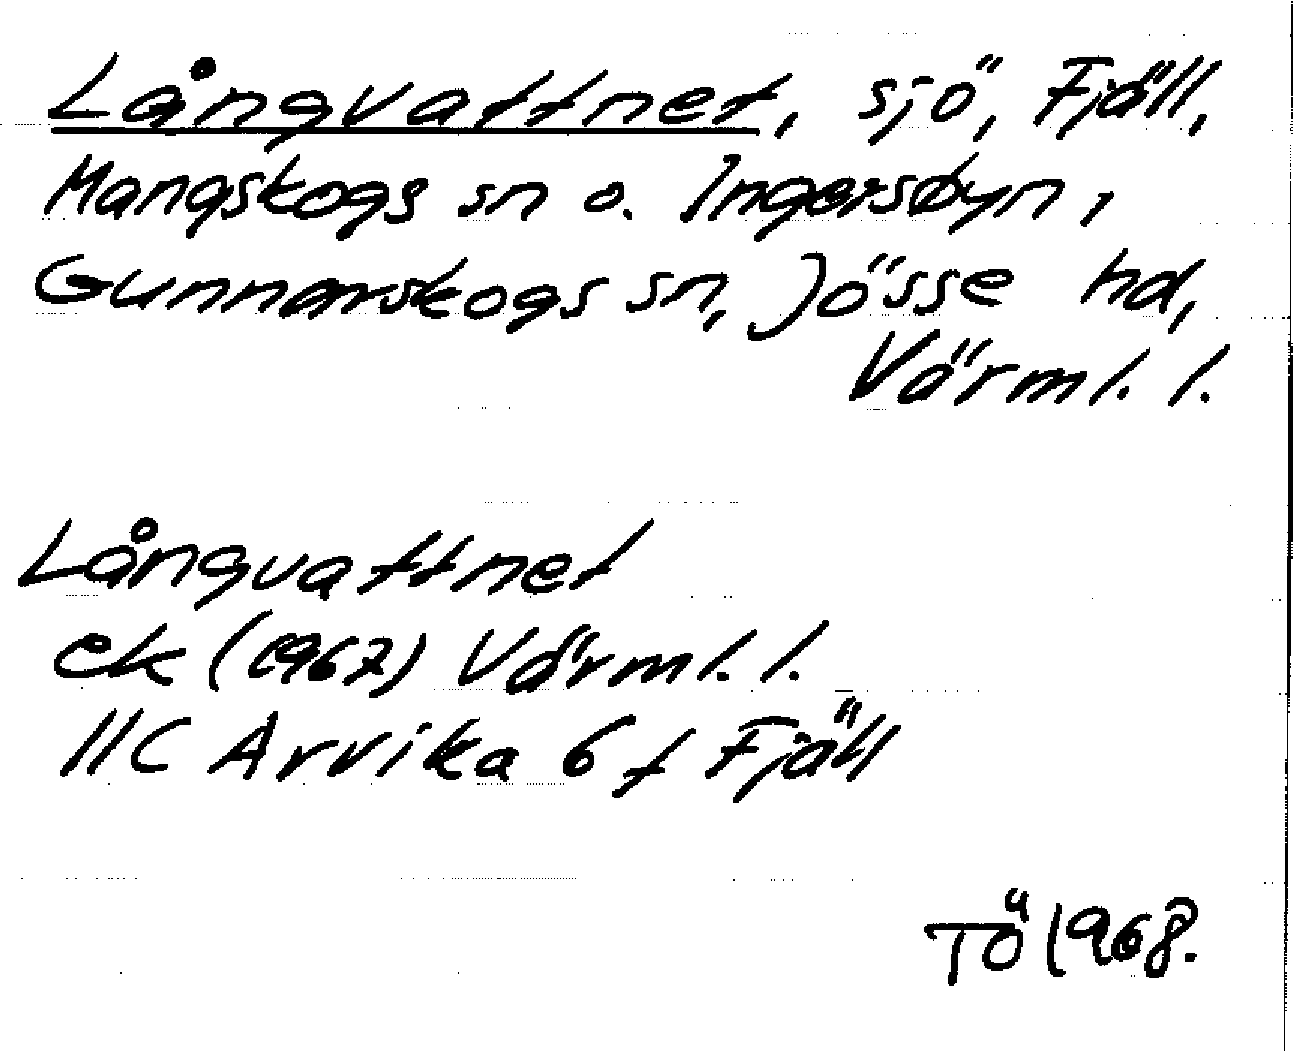 Långvattnet, sjö, Fjäll,
Mangskogs sn o. Ingersbyn,
Gunnarskogs sn, Jösse hd,
Värml. l.
Långvattnet
ek (1967) Värml. l.
11C Arvika 6 f Fjäll
TÖ 1968.